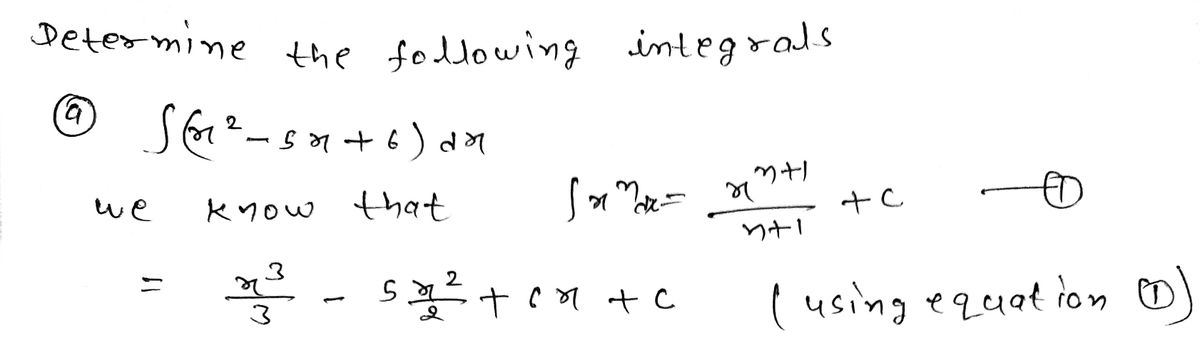 Determine the following integrals
ⓐ ∫(x² - 5x + 6) dx
we know that ∫xⁿdx = xⁿ⁺¹/n+1 + c —①
= x³/3 - 5x²/2 + 6x + c (using equation ①)